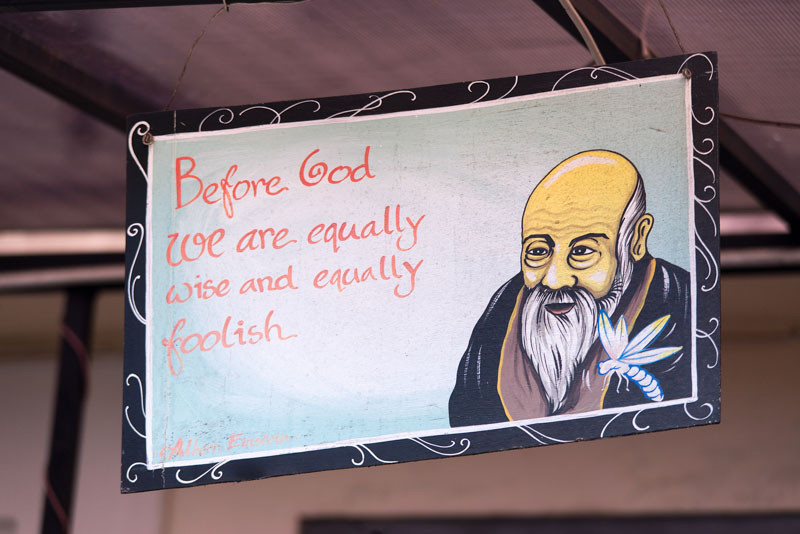 Before God
we are equally
wise and equally
foolish